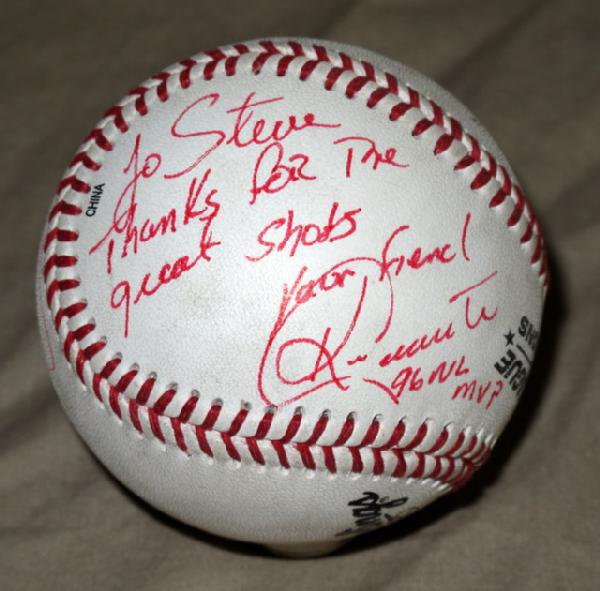 To Steve
Thanks for The
great shots
your friend
96 NL
MVP
CHINA